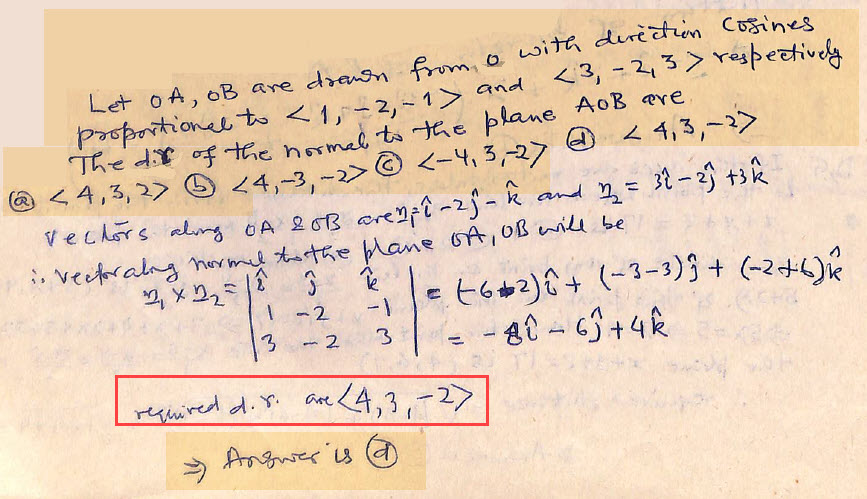 Let OA, OB are drawn from O with direction cosines
proportional to <1, -2, -1> and <3, -2, 3> respectively
The d.r of the normal to the plane AOB are
ⓐ <4, 3, 2> ⓑ <4, -3, -2> ⓒ <-4, 3, -2> ⓓ <4, 3, -2>
vectors along OA & OB are r₁ = î - 2ĵ - k̂ and r₂ = 3î - 2ĵ + 3k̂
∴ vector along normal to the plane OA, OB will be
r₁ × r₂ = | î ĵ k̂ | = (-6-2)î + (-3-3)ĵ + (-2+6)k̂
| 1 -2 -1 |
| 3 -2 3 | = -8î - 6ĵ + 4k̂
required d.r. are <4, 3, -2>
⇒ Answer is ⓓ